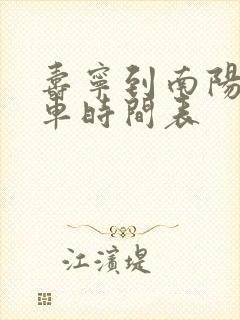 壽寧到南陽
車時間表
江濱堤